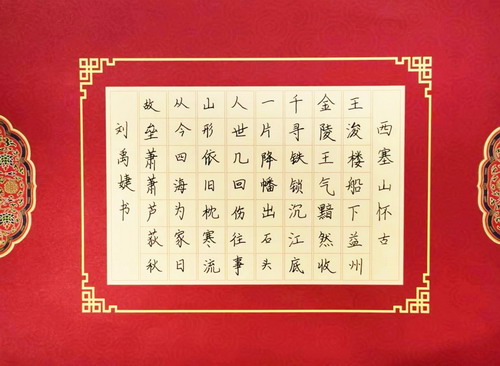 西塞山怀古
王浚楼船下益州
金陵王气黯然收
千寻铁锁沉江底
一片降幡出石头
人世几回伤往事
山形依旧枕寒流
从今四海为家日
故垒萧萧芦荻秋
刘禹婕书